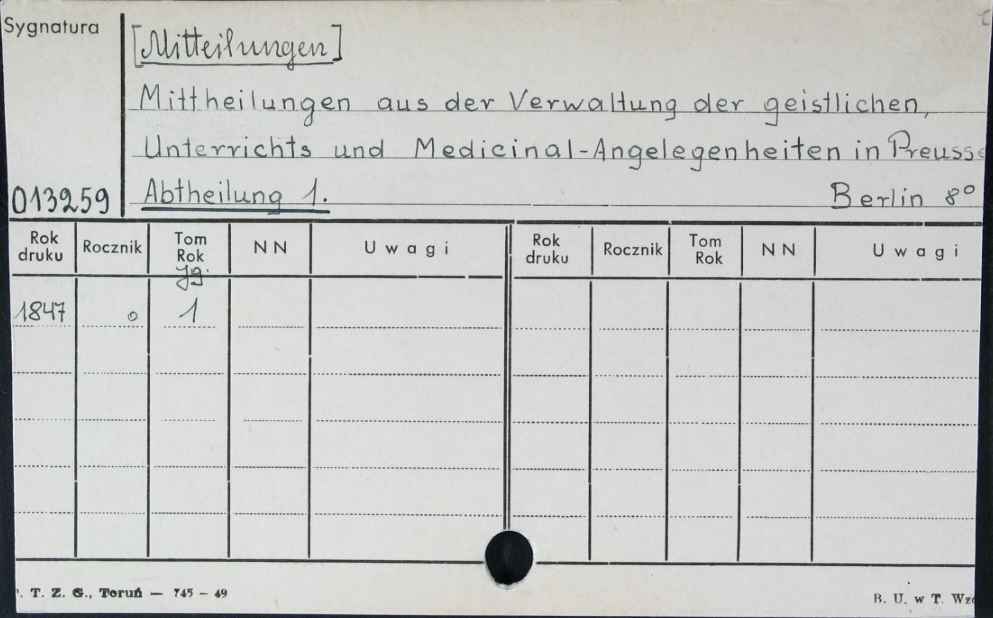 Sygnatura
[Mitteilungen]
Mittheilungen aus der Verwaltung der geistlichen,
Unterrichts und Medicinal-Angelegenheiten in Preuss
013259 Abtheilung 1. Berlin 8°
Rok druku Rocznik Tom Rok Jg. NN Uwagi Rok druku Rocznik Tom Rok NN Uwagi
1847 o 1
. T. Z. G., Toruń — 745 – 49
B. U. w T. Wz